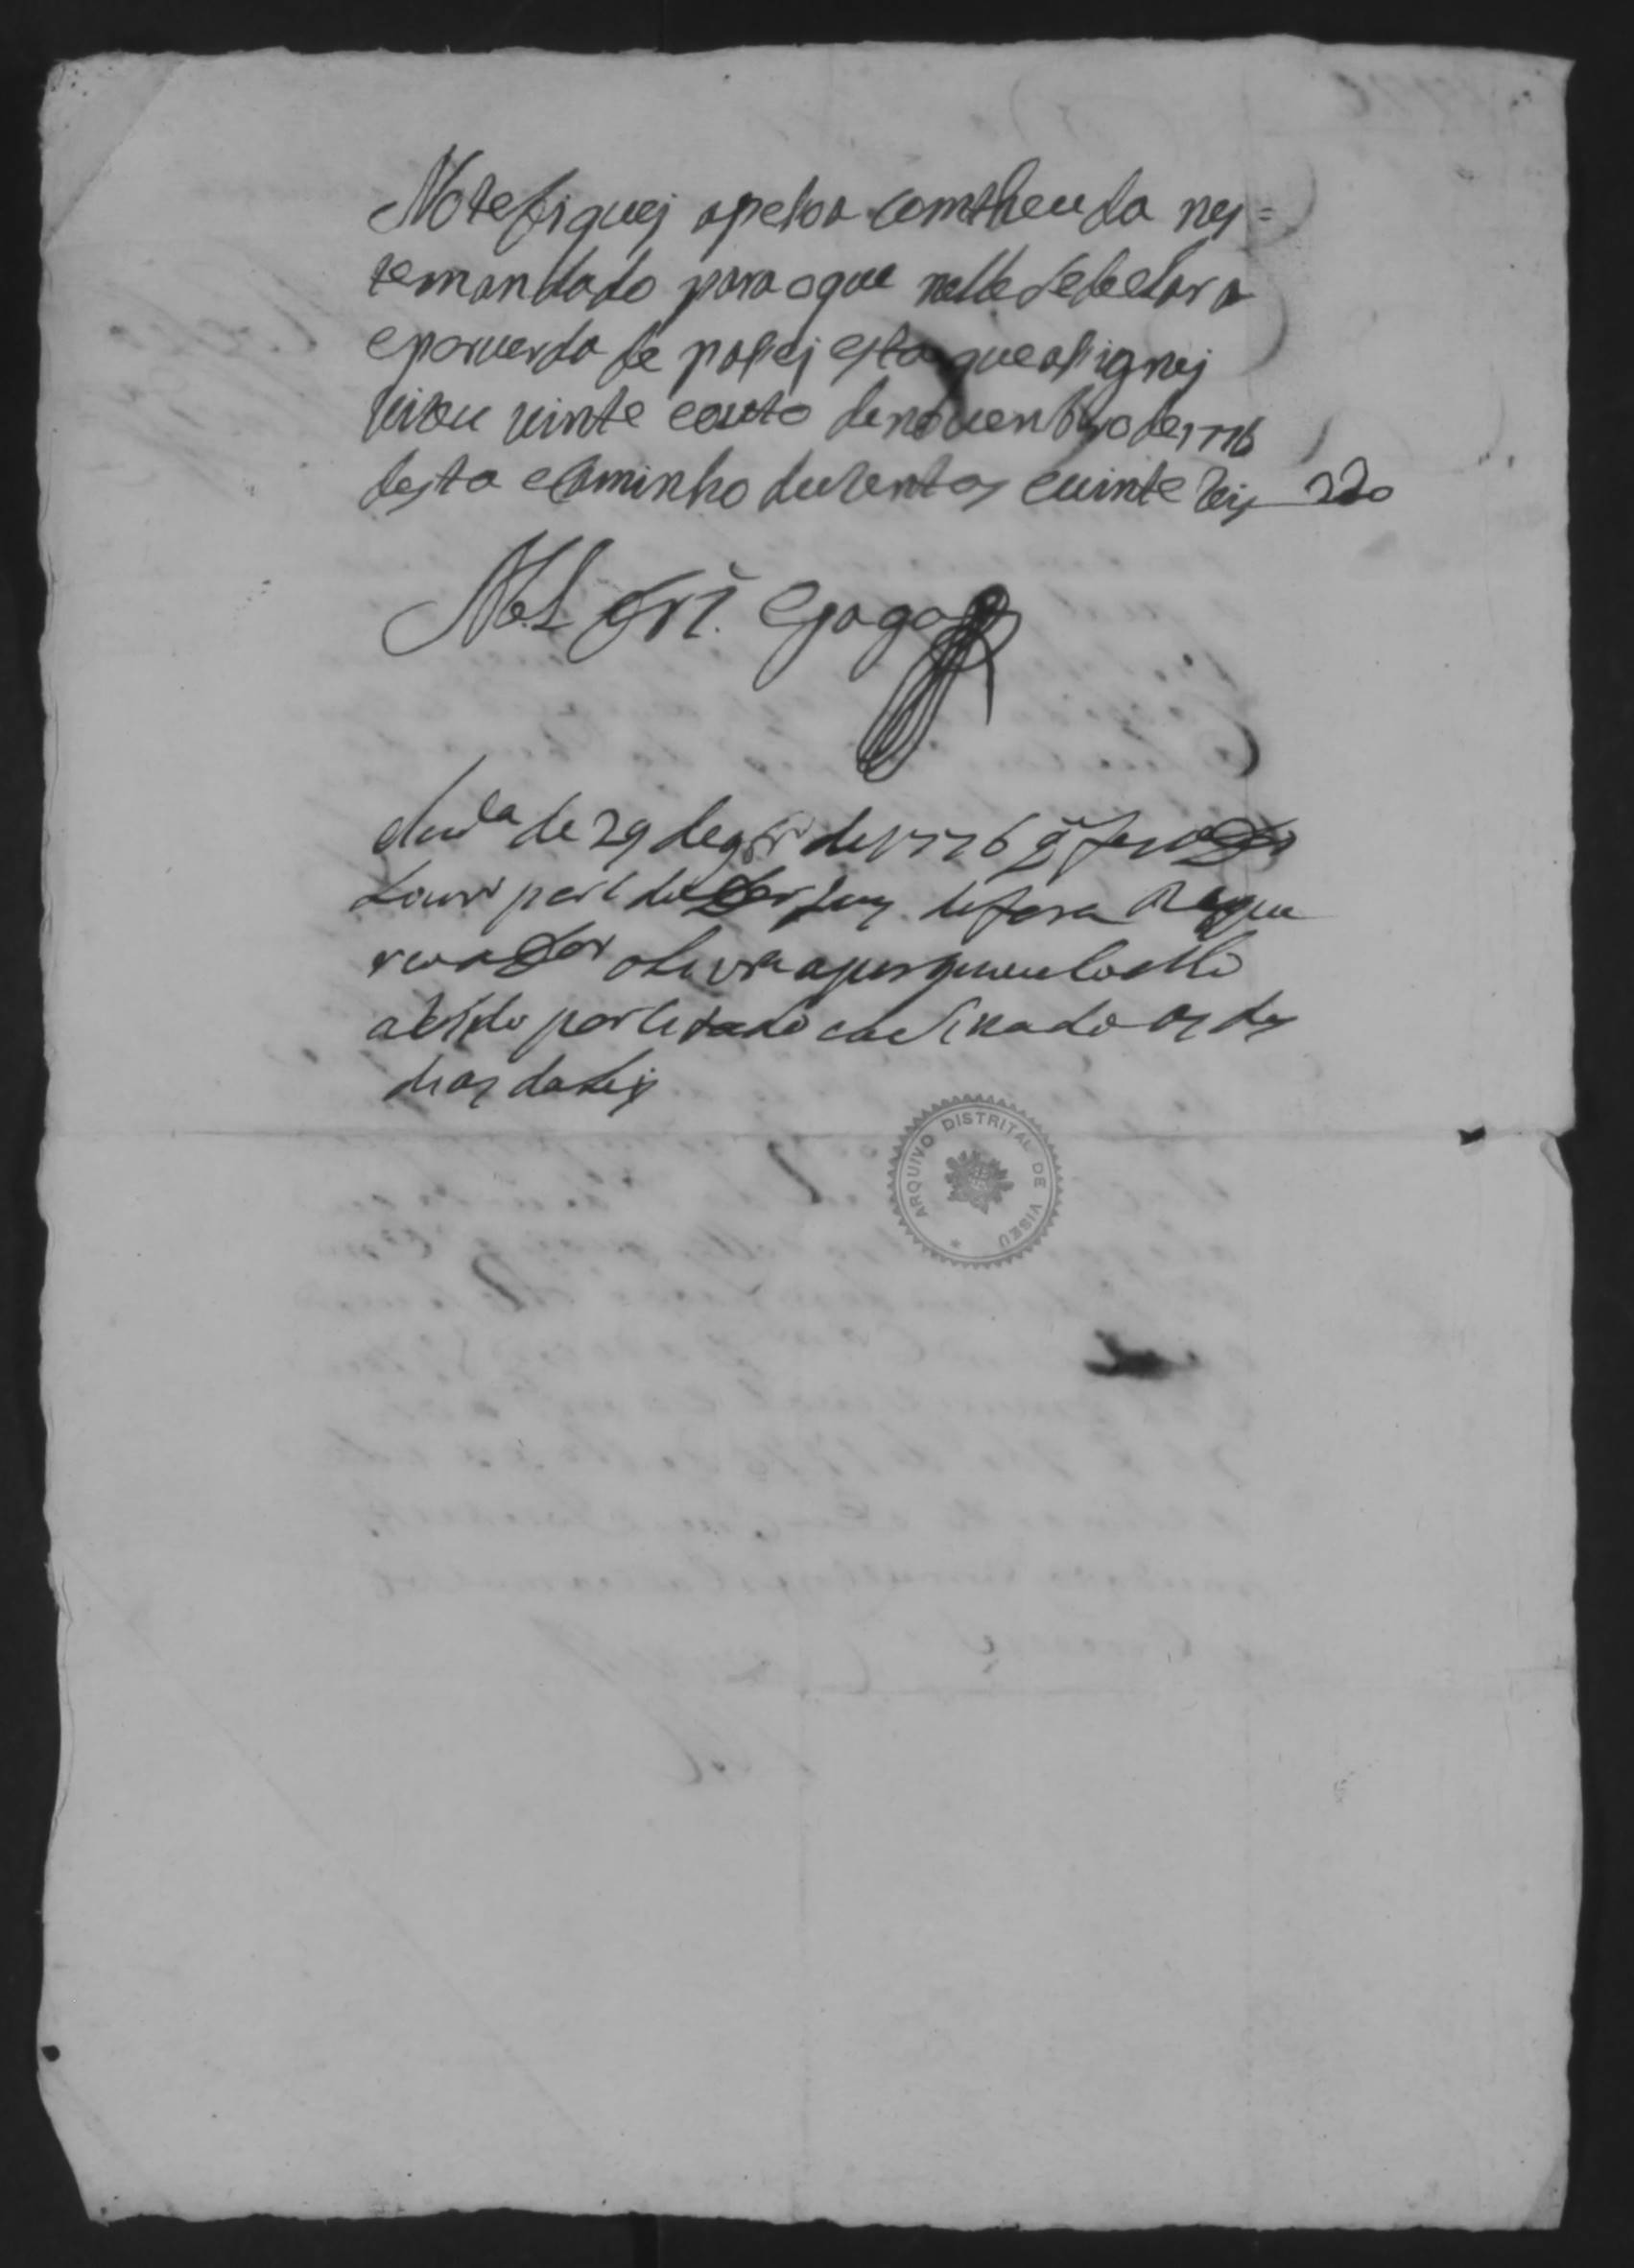 Notefiquej apesoa comtheuda nes=
temandado para oque nelle sedeclara
eporverda de pasej esta que asignej
vizeu vinte eouto denovembro de1776
desta eCaminho duzentos evinte Reis 220
Mel Frz. Gago
Auda de 29 de 9bro de 1776 q fes o Dor
por el do Dor Juiz defora Reque
reo o Dor olivra
avido por sitado easinado os des
dias da Lej
ARQUIVO DISTRITAL DE VISEU